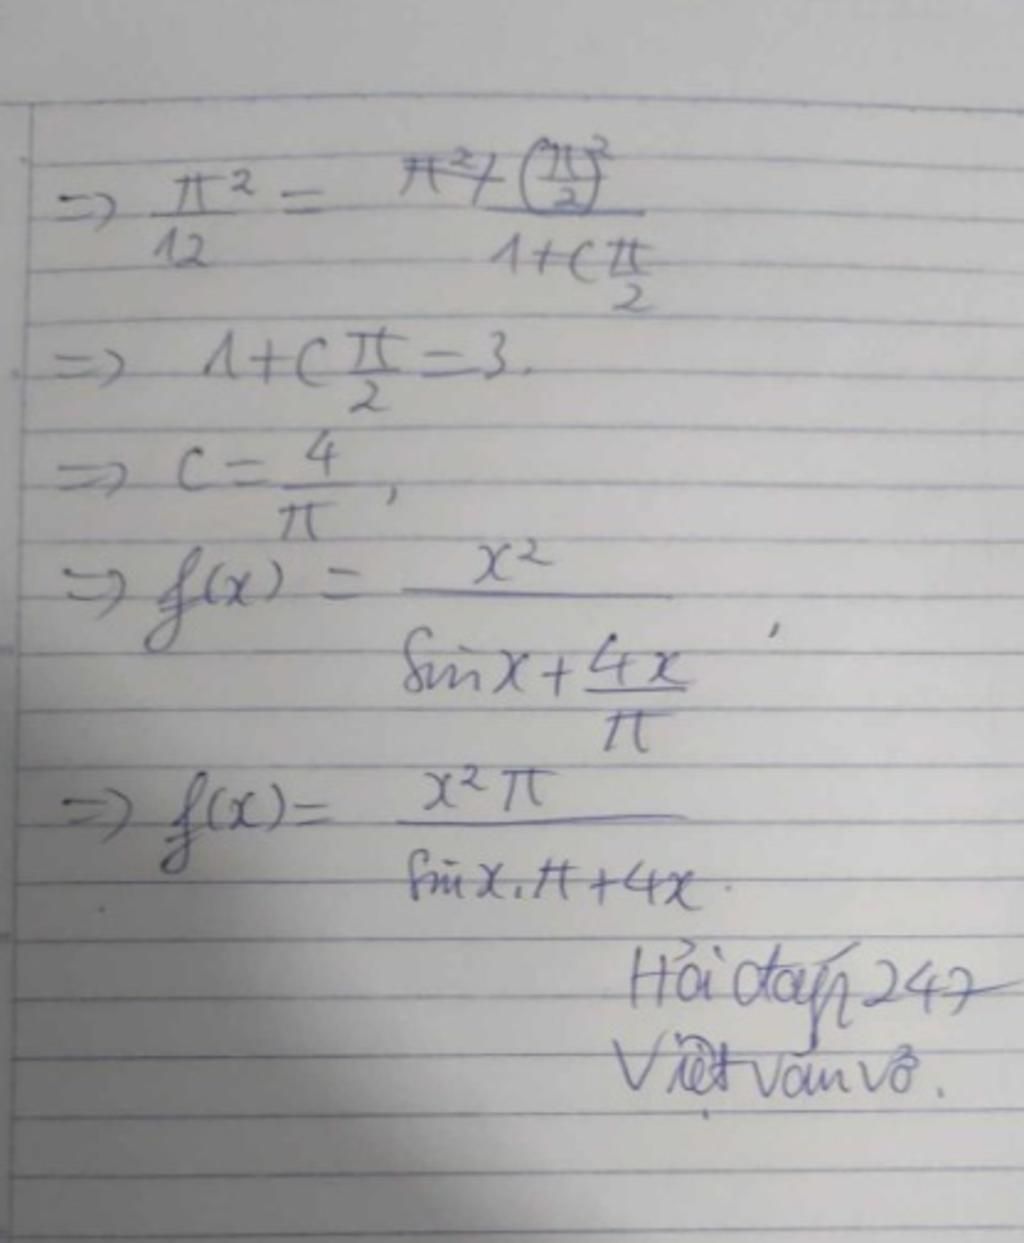 => π²/12 = (π/2)²/(1+Cπ/2)
=> 1+Cπ/2 = 3.
=> C = 4/π,
=> f(x) = x²/(sinx + 4x/π),
=> f(x) = x²π/(sinx.π+4x).
Hỏi đáp 247
Việt văn võ.